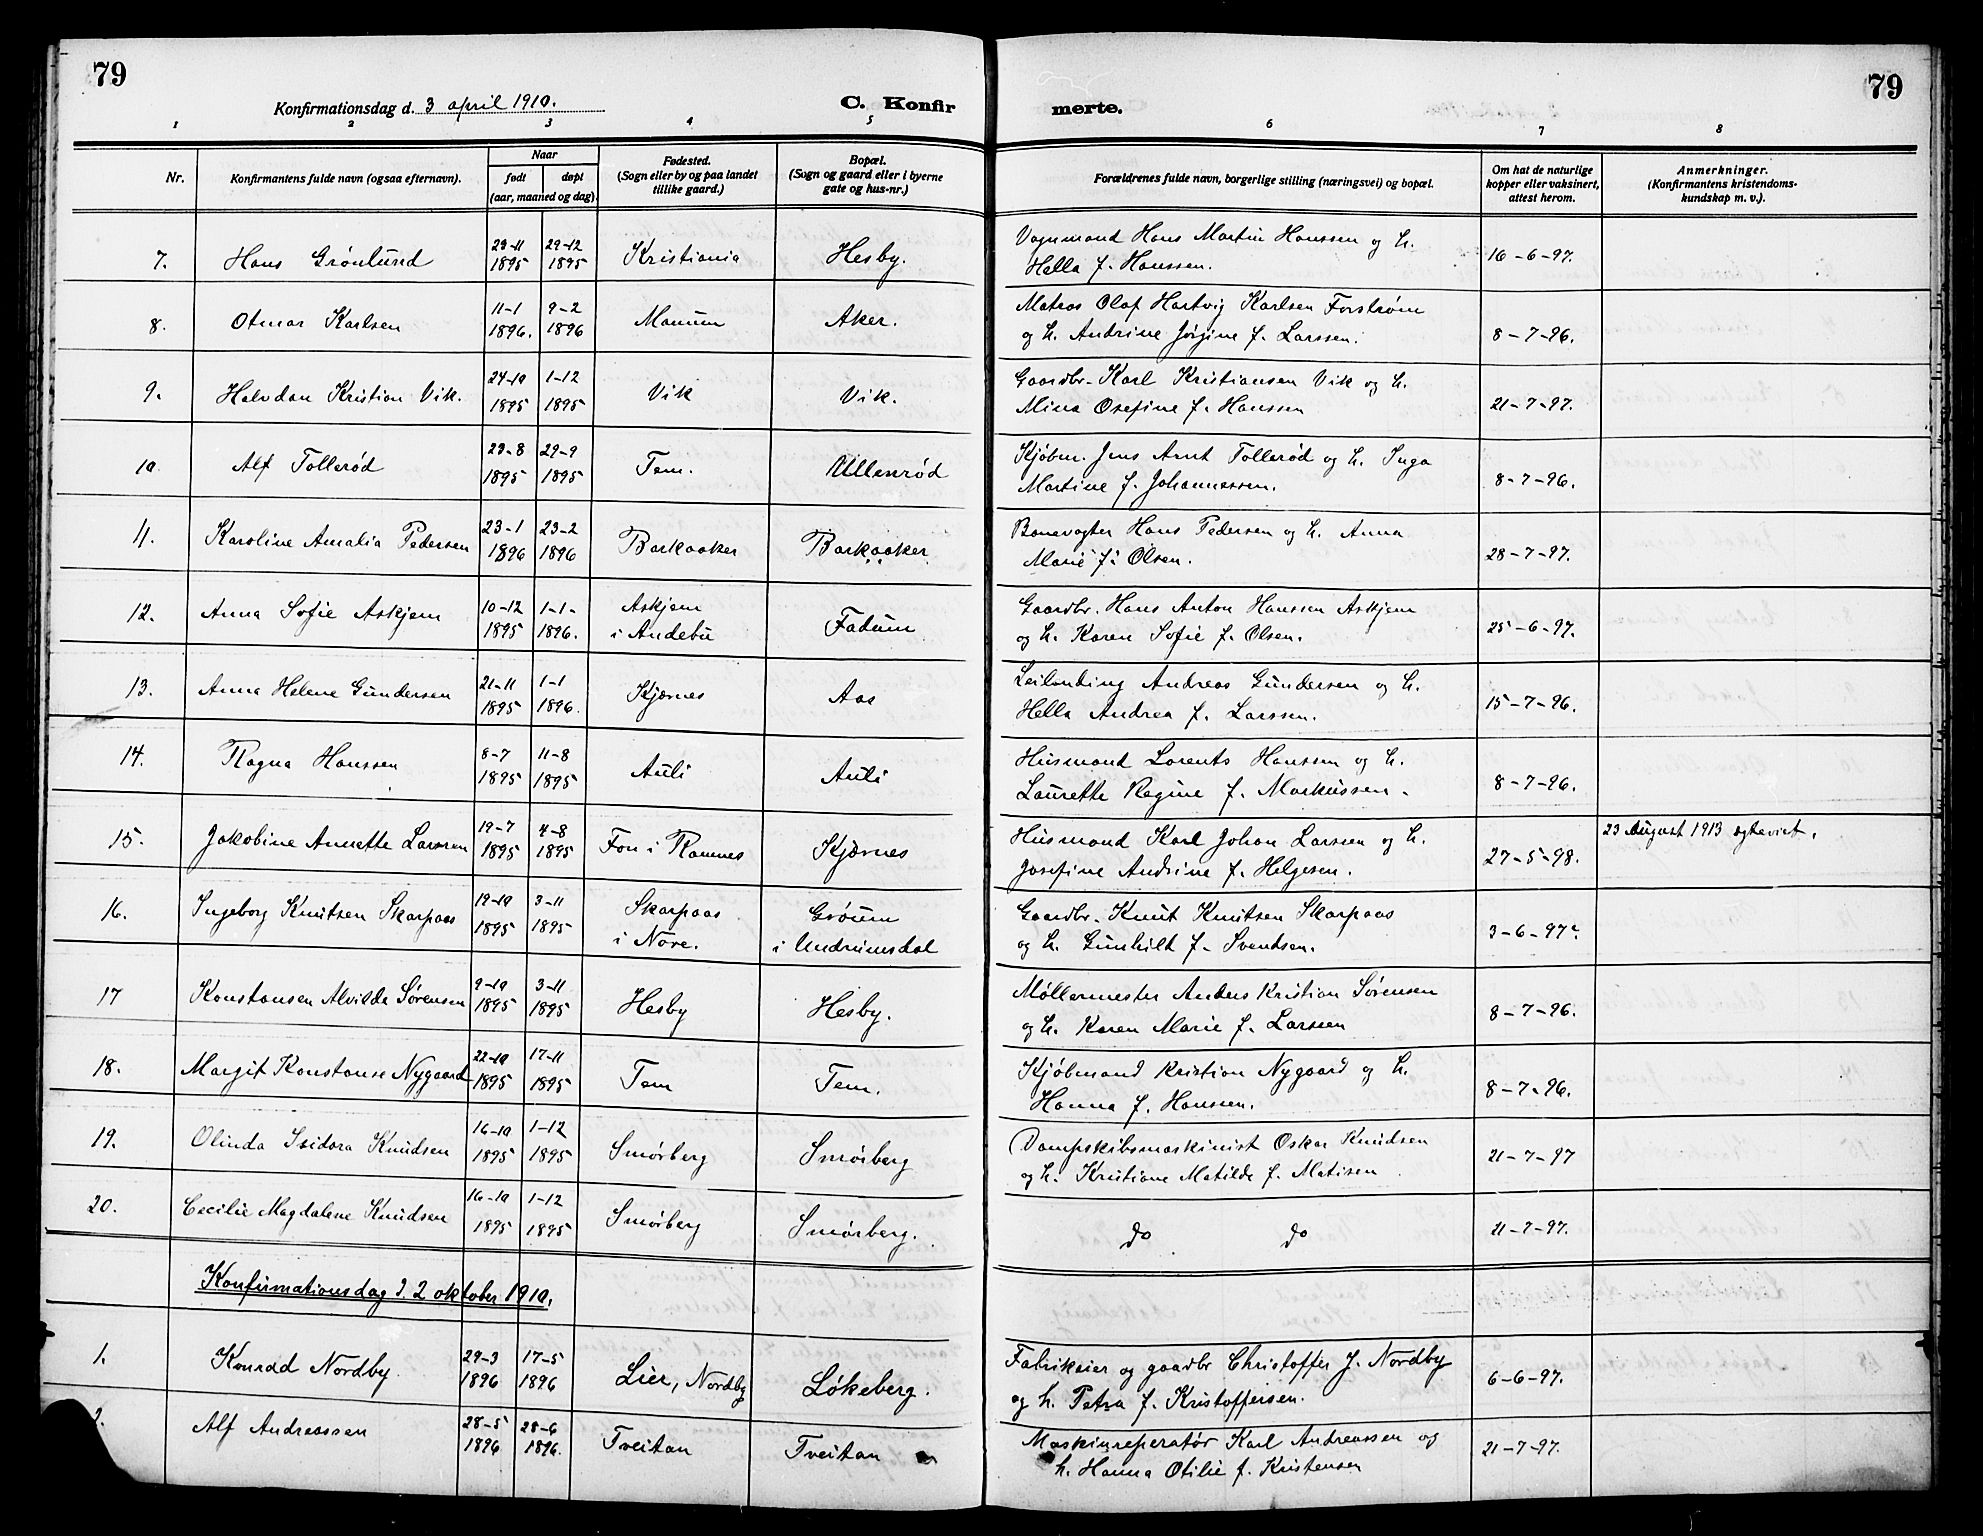 79
79
Konfirmationsdag d. 3 april 1910.
C. Konfirmerte.
1 2 3 4 5 6 7 8
Nr.
Konfirmantens fulde navn (ogsaa efternavn).
Naar
født
døpt
(aar, maaned og dag).
Fødested.
(Sogn eller by og paa landet
tillike gaard.)
Bopæl.
(Sogn og gaard eller i byerne
gate og hus-nr.)
Forældrenes fulde navn, borgerlige stilling (næringsvei) og bopæl.
Om hat de naturlige
kopper eller vaksinert,
attest herom.
Anmerkninger.
(Konfirmantens kristendoms-
kundskap m. v.).
7. Hans Grönlund 29-11 1895 29-12 1895 Kristiania Hesby. Vognmand Hans Martin Hanssen og h.
Hella f. Hanssen. 16-6-97.
8. Otmar Karlsen 11-1 1896. 9-2 1896 Manum Aker. Matros Olaf Hartvig Karlsen Forstrøm
og h. Andrine Jørgine f. Larssen. 8-7-96.
9. Halvdan Kristian Vik. 24-10 1895 1-12 1895 Vik Vik. Gaardbr. Karl Kristiansen Vik og h.
Mina Osefine f. Hanssen 21-7-97.
10. Alf Tollerød 29-8 1895 29-9 1895 Tem. Ullenrød Kjøbm. Jens Arnt Tollerød og h. Inga
Martine f. Johannessen. 8-7-96.
11. Karoline Amalia Pedersen 23-1 1896 23-2 1896 Barkaaker Barkaaker Banevogter Hans Pedersen og h. Anna
Marie f. Olsen. 28-7-97.
12. Anna Sofie Askjem 10-12 1895 1-1- 1896. Askjem
i Andebu Fadum Gaardbr. Hans Anton Hanssen Askjem
og h. Karen Sofie f. Olsen. 25-6-97.
13. Anna Helene Gundersen 21-11 1895 1-1 1896. Kjærnes Aas Leilending Andreas Gundersen og h.
Hella Andrea f. Larssen. 15-7-96.
14. Ragna Hanssen 8-7 1895 11-8 1895 Auli Auli Husmand Lorents Hanssen og h.
Laurette Regine f. Markussen. 8-7-96.
15. Jakobine Annette Larssen 19-7 1895 4-8 1895 Fon i Ramnes Kjærnes Husmand Karl Johan Larssen og h.
Josefine Andrine f. Helgesen. 27-5-98. 23 August 1913 egteviet.
16. Ingeborg Knutsen Skarpaas 19-10 1895 3-11 1895 Skarpaas
i Nore. Gröum
i Undrumsdal Gaardbr. Knut Knutsen Skarpaas
og h. Gunhilt f. Svendsen. 3-6-97.
17 Konstansen Alvilda Sørensen 9-10 1895 3-11 1895 Hesby Hesby. Møllermester Anders Kristian Sørensen
og h. Karen Marie f. Larssen 8-7-96.
18. Margit Konstanse Nygaard 22-10 1895 17-11 1895 Tem Tem. Kjøbmand Kristian Nygaard og h.
Hanna f. Hanssen. 8-7-96.
19. Olinda Isidora Knudsen 16-10 1895 1-12 1895 Smørberg Smørberg Dampskibsmaskinist Oskar Knudsen
og h. Kristiane Matilde f. Matisen 21-7-97
20. Cecilie Magdalene Knudsen 16-10 1895 1-12 1895 Smørberg Smørberg. do do 21-7-97.
Konfirmationsdag d. 2 oktober 1910.
1. Konrad Nordby. 29-3 1896 17-5 1896 Lier, Nordby Løkeberg. Fabrikeier og gaardbr Christoffer J. Nordby
og h. Petra f. Kristoffersen. 6-6-97.
2. Alf Andreassen 28-5 1896 28-6 1896. Tveitan Tveitan Maskinreperatør Karl Andreassen og
h. Hanna Otilie f. Kristensen 21-7-97.